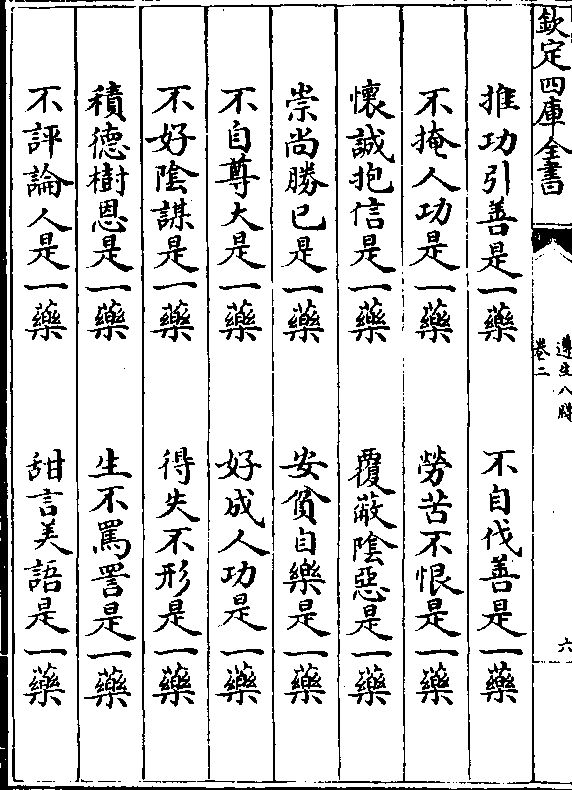 欽定四庫全書
遵生八牋
卷二
六
推功引善是一藥 不自伐善是一藥
不掩人功是一藥 勞苦不恨是一藥
懷誠抱信是一藥 覆蔽陰惡是一藥
崇尚勝已是一藥 安貧自樂是一藥
不自尊大是一藥 好成人功是一藥
不好陰謀是一藥 得失不形是一藥
積德樹恩是一藥 生不罵詈是一藥
不評論人是一藥 甜言美語是一藥